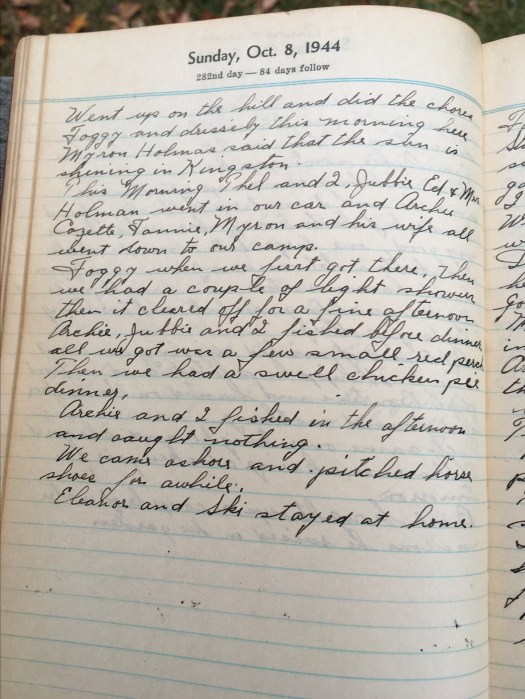 Sunday, Oct. 8, 1944
282nd day — 84 days follow
Went up on the hill and did the chores
Foggy and this morning here
Myron Holmas said that the sun is
shining in Kingston.
This Morning Phel and I, Jubbie Ed & Mrs
Holman went in our car and Archie
Cozette, Fannie, Myron and his wife all
went down to our camp.
Foggy when we first got there, then
we had a couple of light showers
then it cleared off for a fine afternoon
Archie, Jubbie and I fished before dinner
all we got was a few small red perch
Then we had a swell chicken pie
dinner,
Archie and I fished in the afternoon
and caught nothing.
We came ashore and pitched horse
shoes for awhile.
Eleanor and Ski stayed at home.